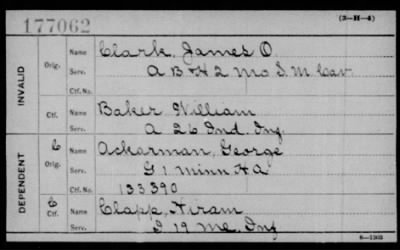 177062
(3-H-4)
INVALID
Orig.
Name Clark, James O.
Serv. A B & H 2 Mo S. M. Cav.
Ctf. No.
Ctf.
Name Baker William
Serv. A 26 Ind. Inf.
DEPENDENT
C
Orig.
Name Ackarman, George
Serv. G 1 Minn H A
Ctf. No. 133390
C
Ctf.
Name Clapp, Hiram
Serv. I 19 Me. Inf
6-1303